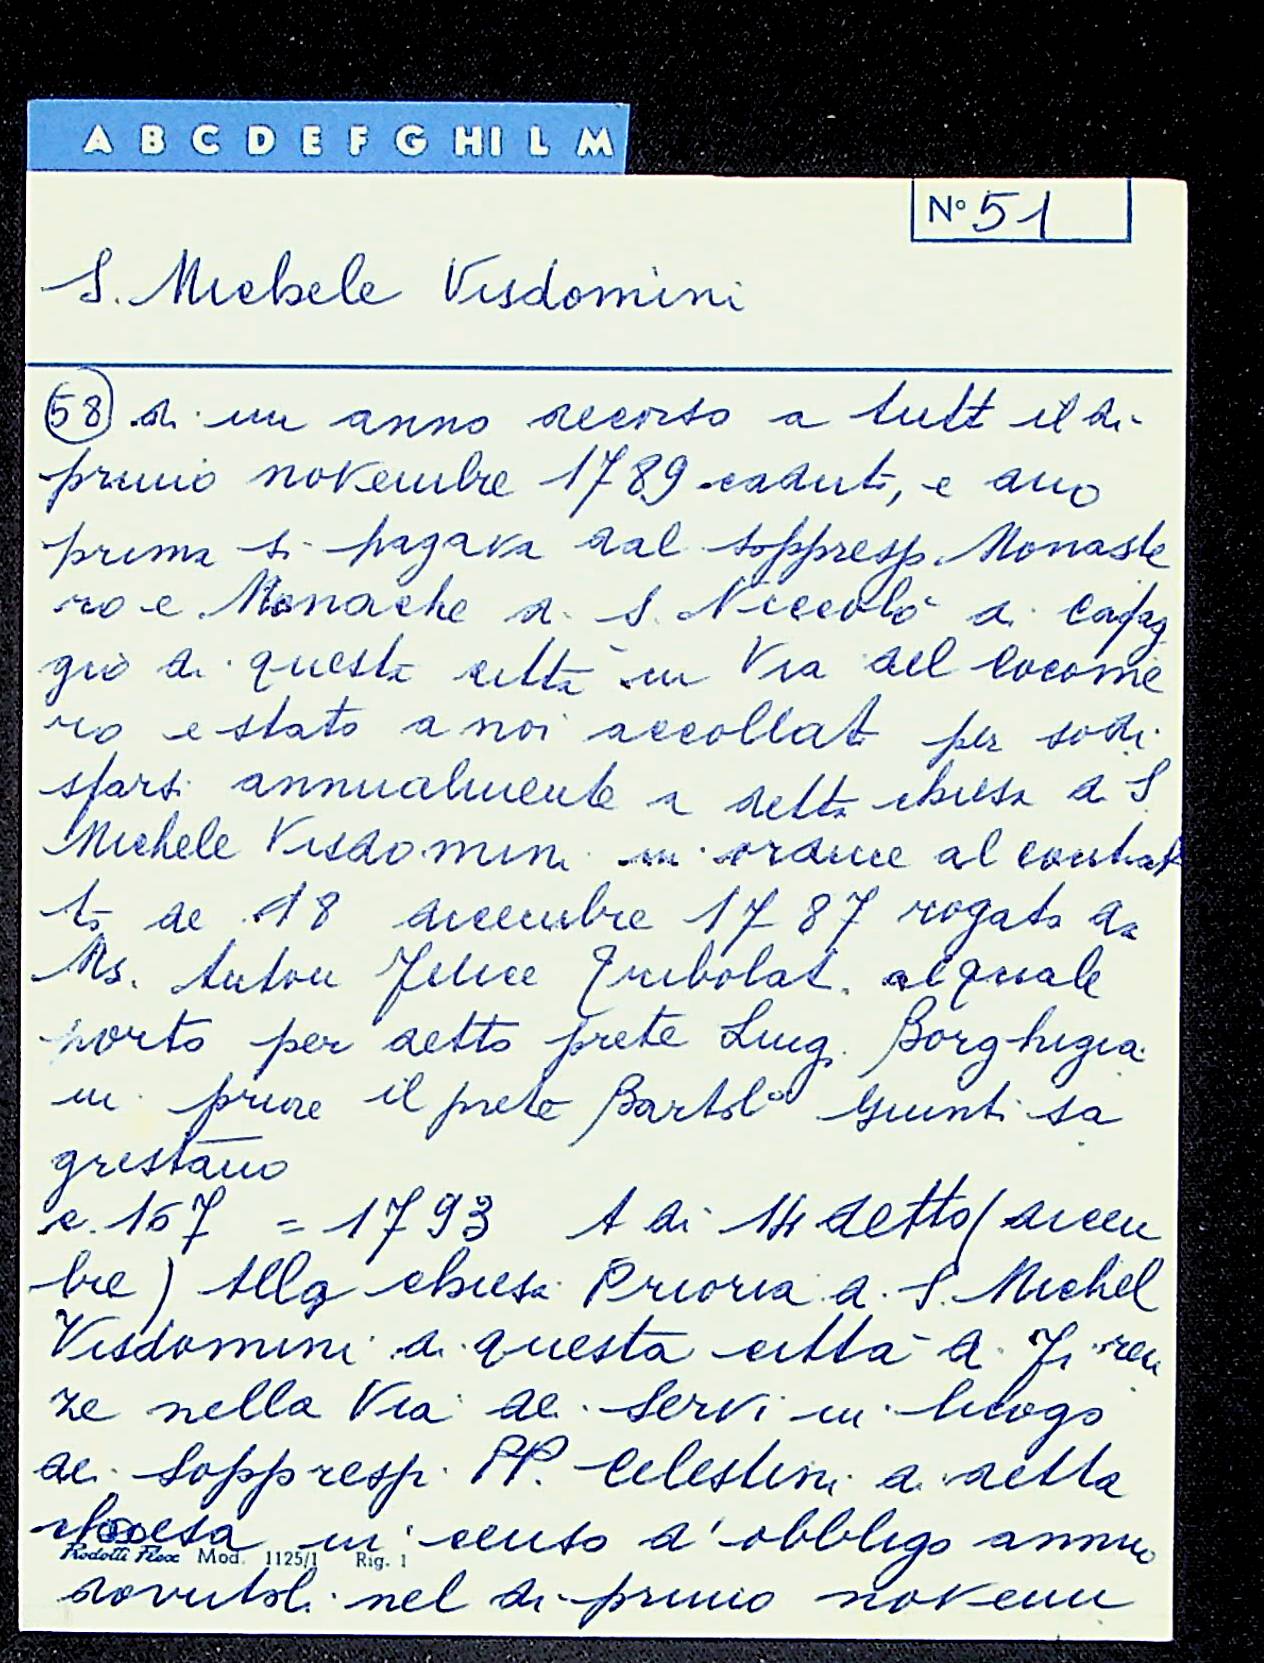 A B C D E F G HI L M
N° 51
S. Michele Visdomini
(58) di un anno decorso a tutt il di
primo novembre 1789 caduti, e ano
prima si pagava dal soppresso Monaste
ro e Monache di S. Niccolò di Cafag
gio di questa città in Via del Cocome
ro e stato a noi accollato per sodi
sfarsi annualmente a detta chiesa di S.
Michele Visdomini in ordine al contrat
to de 18 dicembre 1787 rogato da
Ms. Anton Felice Tribolati al quale
portò per detto prete Luig. Borghigia
ni priore il prete Bartol° Giunti sa
grestano
c. 167 = 1793 A di 14 detto (dicem
bre) Alla chiesa Prioria di S. Michel
Visdomini di questa città di Firen
ze nella Via de Servi in luogo
dei Soppressi PP. Celestini di detta
chiesa un censo d'obbligo annuo
Rodotti Flex Mod. 1125/1 Rig. 1
dovutoli nel di primo novem